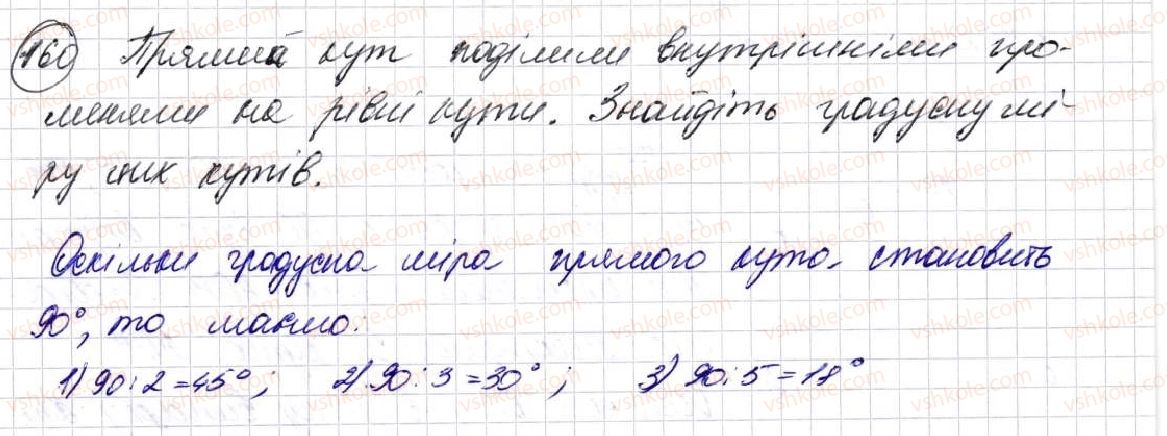 160 Прямий кут поділили внутрішніми про-
менями на рівні кути. Знайдіть градусну мі-
ру цих кутів.
Оскільки градусна міра прямого кута становить
90°, то маємо:
1) 90 : 2 = 45° ; 2) 90 : 3 = 30° ; 3) 90 : 5 = 18°